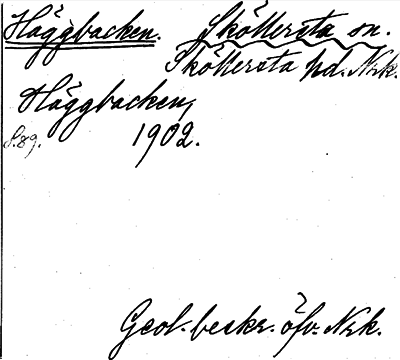 Häggbacken. Sköllersta sn.
Sköllersta hd. Nrk.
Häggbacken,
S.89. 1902.
Geol. beskr. öfv. Nrk.